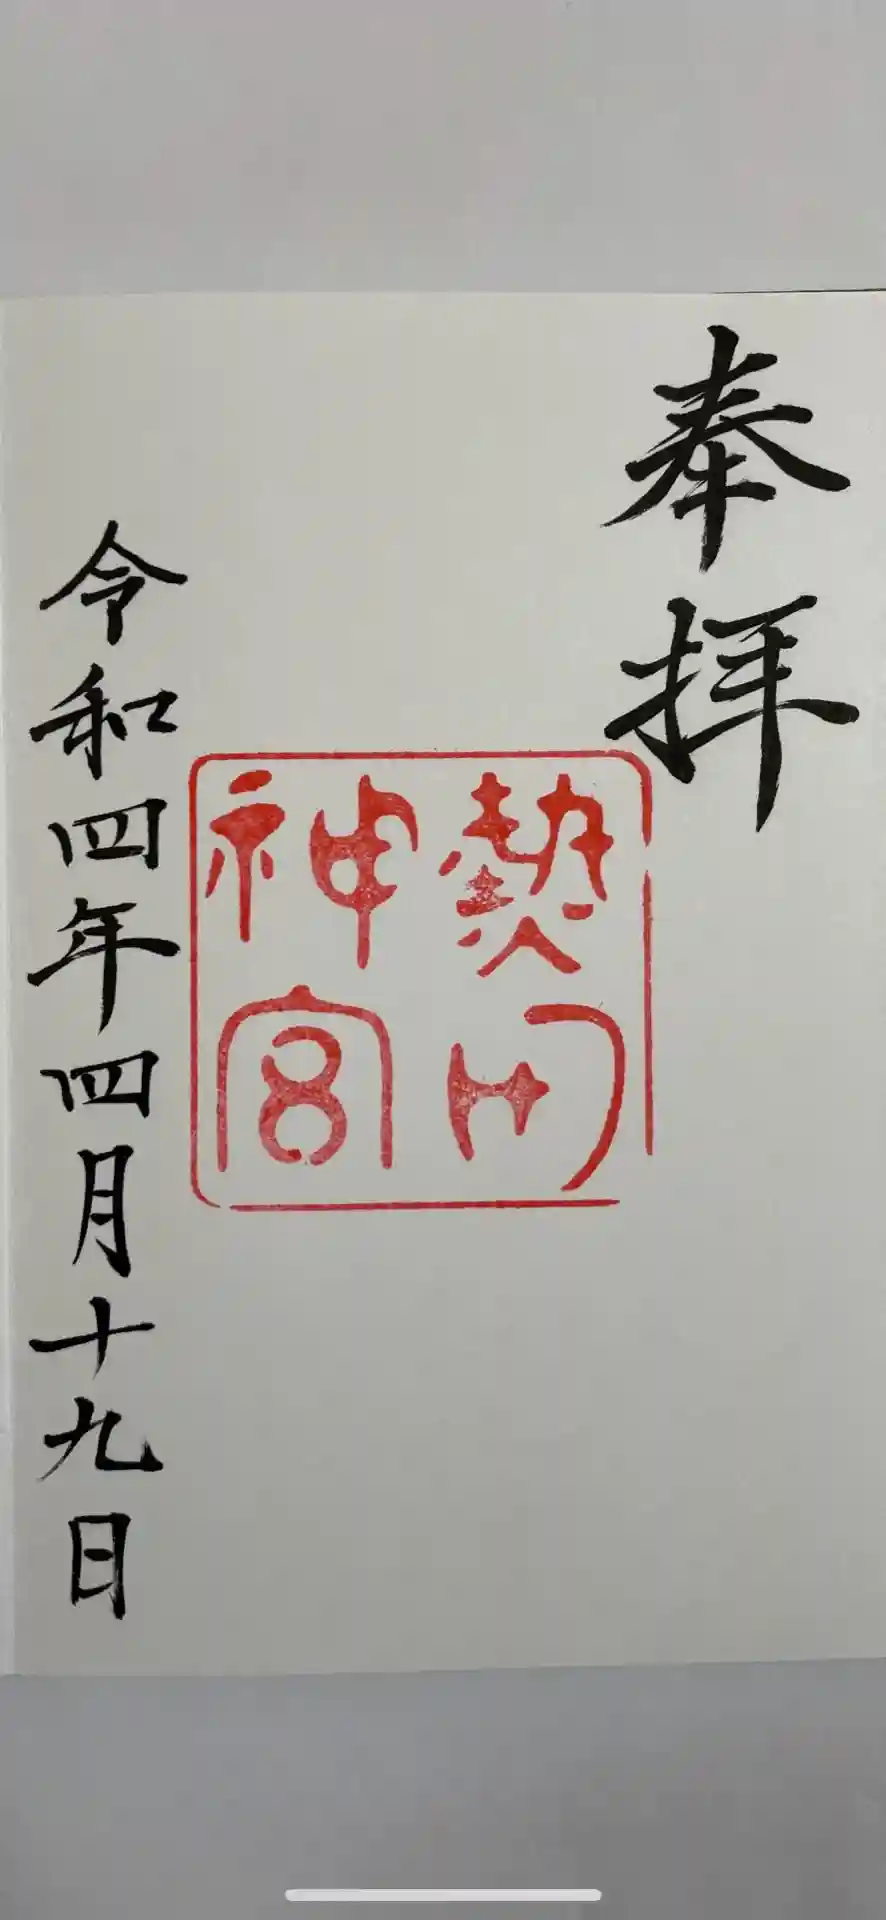 奉拝
熱田
神宮
令和四年四月十九日